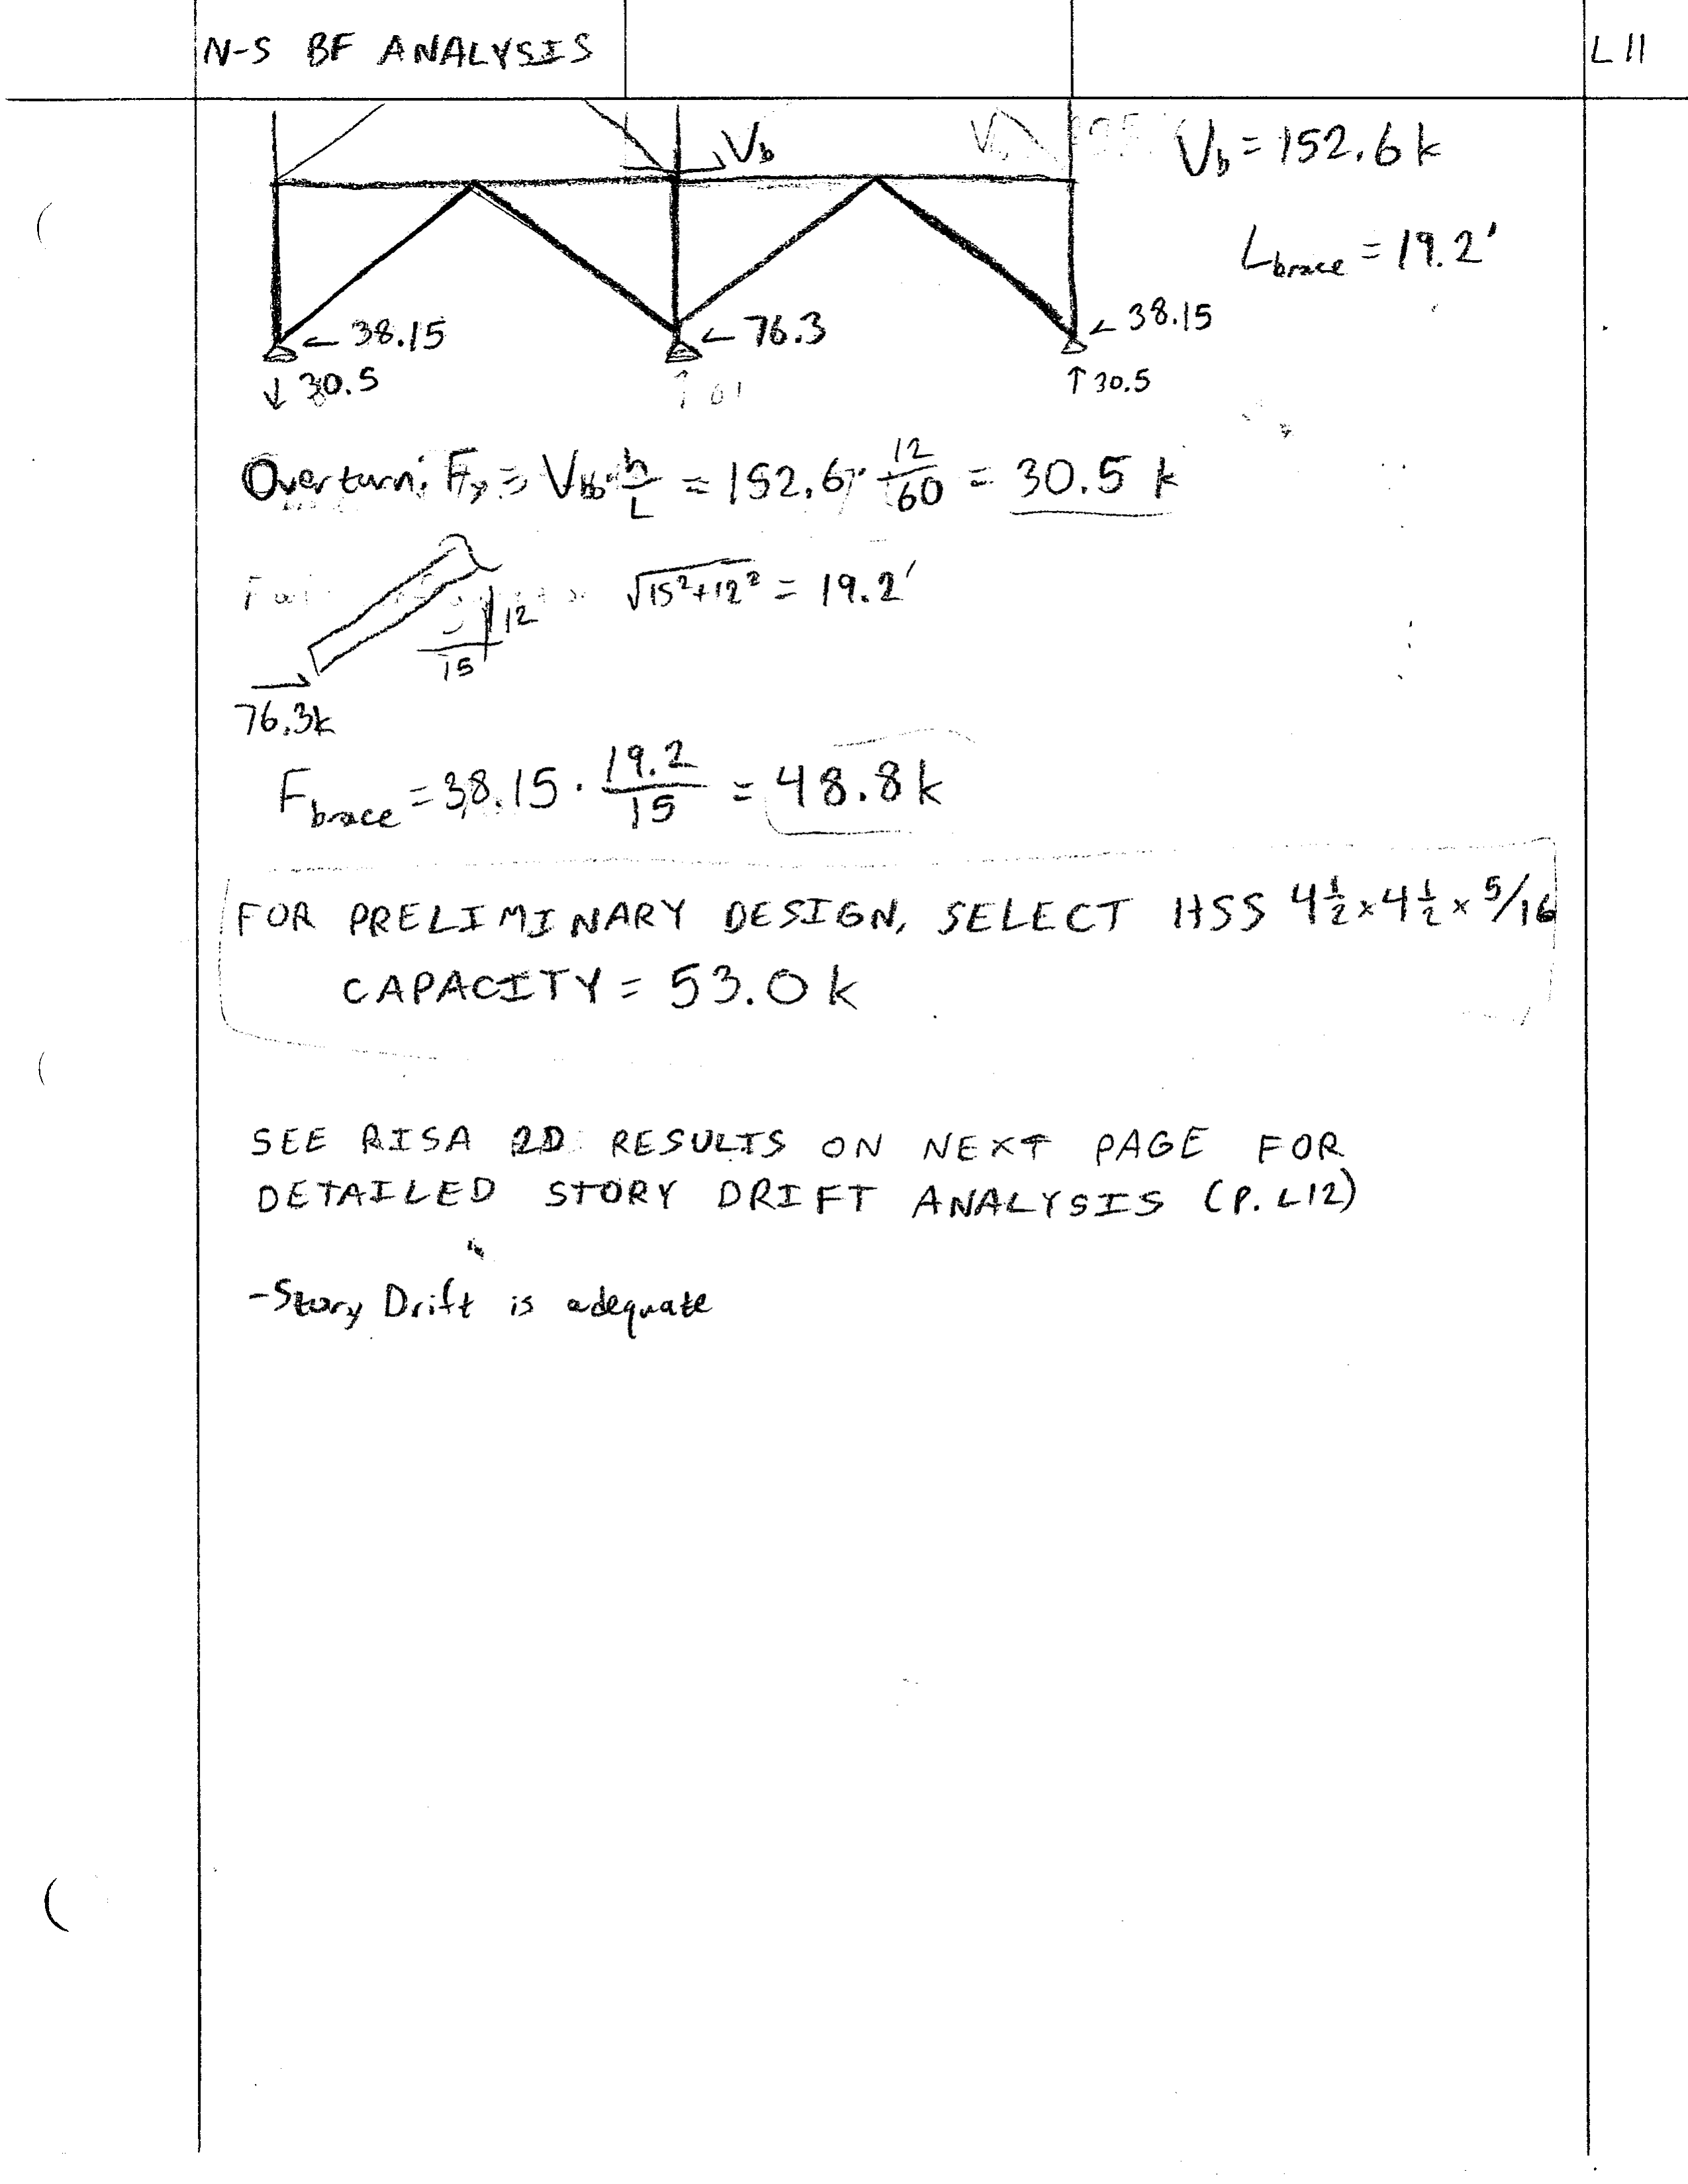 N-S BF ANALYSIS
L11
Vb
Vb = 152.6 k
Lbrace = 19.2'
← 38.15
← 76.3
← 38.15
↓ 30.5
↑ 61
↑ 30.5
Overturn: Fy = Vb · h/L = 152.6 · 12/60 = 30.5 k
12
15
√15²+12² = 19.2'
76.3k
Fbrace = 38.15 · 19.2/15 = 48.8 k
FOR PRELIMINARY DESIGN, SELECT HSS 4½ x 4½ x 5/16
CAPACITY = 53.0 k
SEE RISA 2D RESULTS ON NEXT PAGE FOR
DETAILED STORY DRIFT ANALYSIS (P. L12)
-Story Drift is adequate